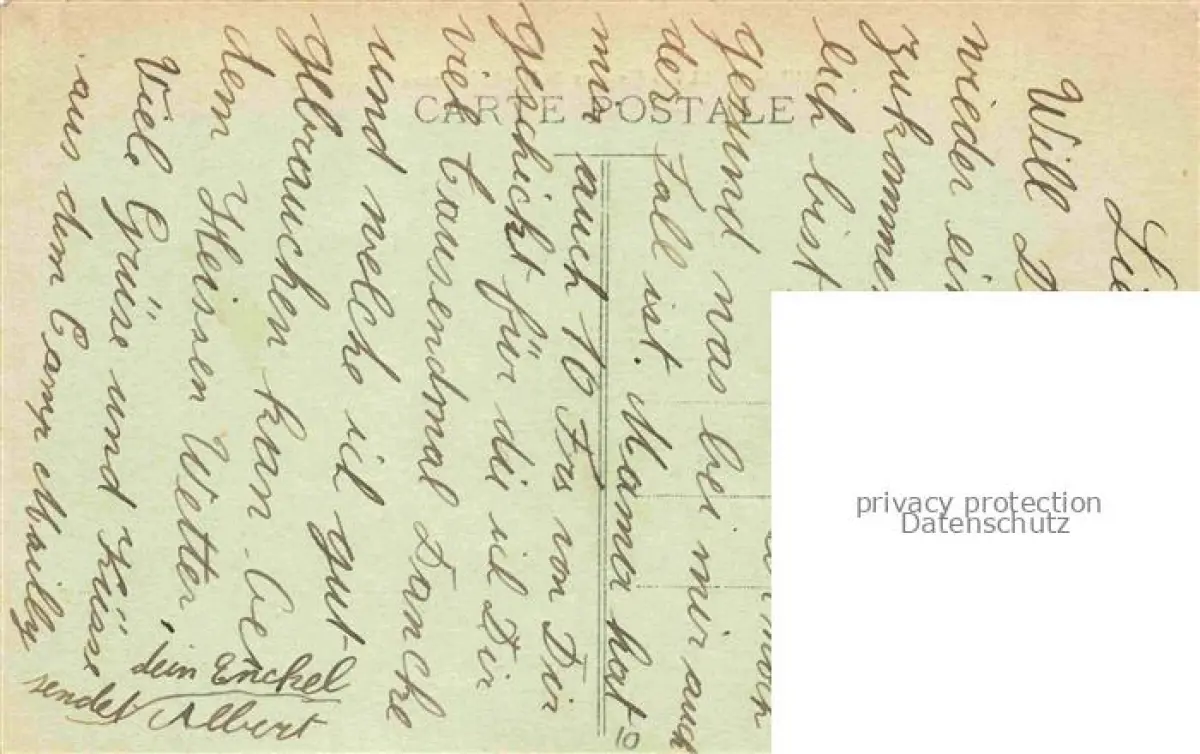 CARTE POSTALE
Will
wieder
zukommen
lich bist
noch
gesund was bei mir auch
der Fall ist. Mama hat
mir auch 10 Frs von Dir
geschickt für die ich Dir
viel tausendmal Dancke
und welche ich gut
gebrauchen kan bei
dem Heissen Wetter,
Viele Grüsse und Küsse
aus dem Camp Mailly
sendet
dein Enckel
Albert
10
privacy protection
Datenschutz